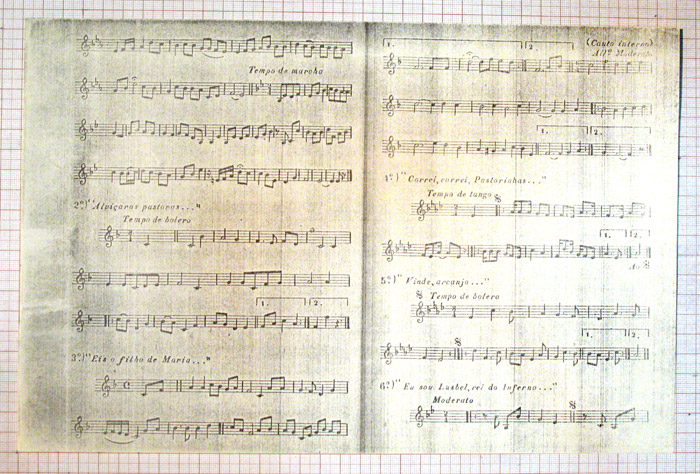 Tempo de marcha
2º) "Alviçaras pastoras..."
Tempo de bolero
1. 2.
3º) "Eis o filho de Maria..."
1. 2.
(Canto interno)
All.º Moderato
1. 2.
4º) "Correi, correi, Pastorinhas..."
Tempo de tango
1. 2.
Ao 𝄋
5º) "Vinde, arcanjo..."
Tempo de bolero
1. 2.
6º) "Eu sou Lusbel, rei do Inferno..."
Moderato